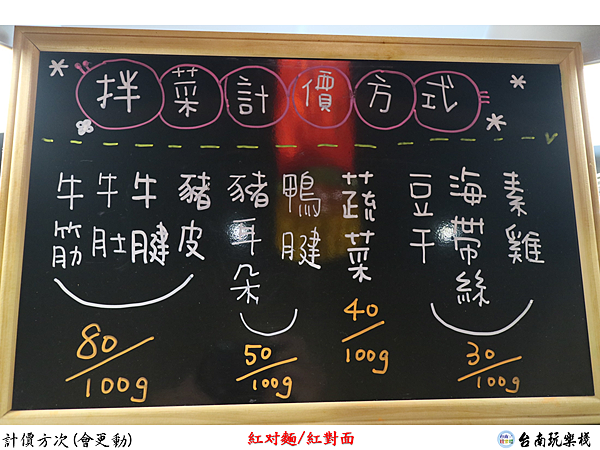 拌菜計價方式
素雞
海帶絲
豆干
30/100g
蔬菜
40/100g
鴨腱
豬耳朵
50/100g
豬皮
牛腱
牛肚
牛筋
80/100g
計價方次(會更動)
紅对麵/紅對面
台南玩樂棧